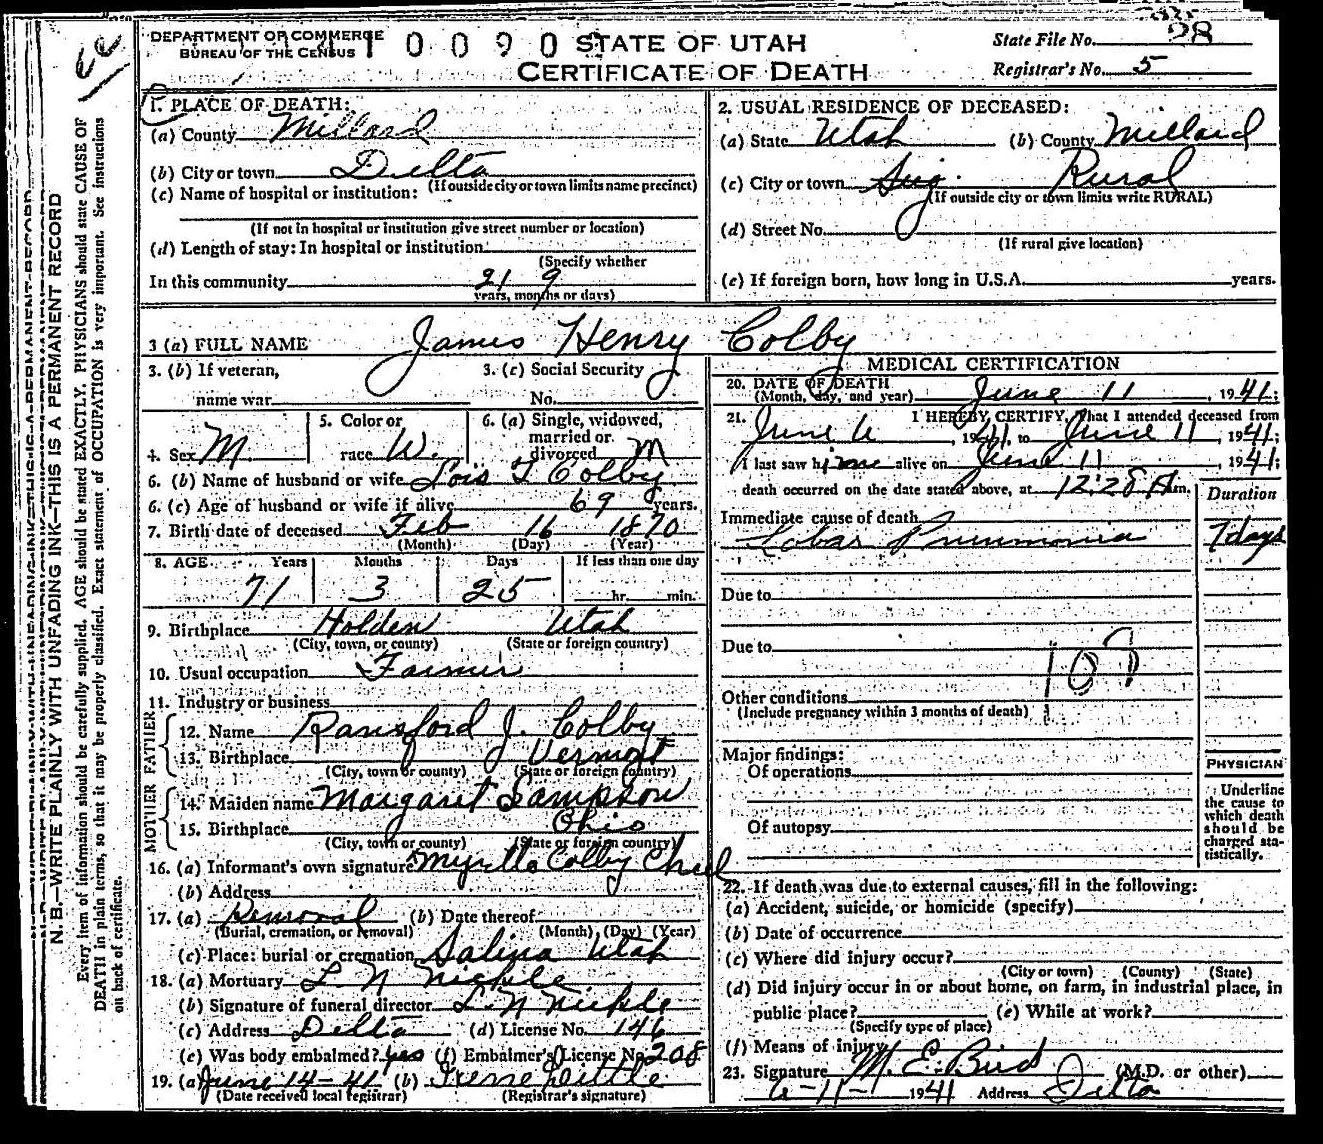 DEPARTMENT OF COMMERCE
BUREAU OF THE CENSUS
STATE OF UTAH
CERTIFICATE OF DEATH
State File No. 98
Registrar's No. 5
N.B.—WRITE PLAINLY WITH UNFADING INK—THIS IS A PERMANENT RECORD
Every item of information should be carefully supplied. AGE should be stated EXACTLY. PHYSICIANS should state CAUSE OF
DEATH in plain terms, so that it may be properly classified. Exact statement of OCCUPATION is very important. See instructions
on back of certificate.
1. PLACE OF DEATH:
(a) County Millard
(b) City or town Delta
(If outside city or town limits name precinct)
(c) Name of hospital or institution:
(If not in hospital or institution give street number or location)
(d) Length of stay: In hospital or institution
(Specify whether
In this community 21 9
years, months or days)
2. USUAL RESIDENCE OF DECEASED:
(a) State Utah (b) County Millard
(c) City or town Rural
(If outside city or town limits write RURAL)
(d) Street No.
(If rural give location)
(e) If foreign born, how long in U.S.A. years.
3 (a) FULL NAME James Henry Colby
3. (b) If veteran,
name war
3. (c) Social Security
No.
4. Sex M.
5. Color or
race W.
6. (a) Single, widowed,
married or
divorced M
6. (b) Name of husband or wife Lois T Colby
6. (c) Age of husband or wife if alive 69 years.
7. Birth date of deceased Feb 16 1870
(Month) (Day) (Year)
8. AGE Years Months Days If less than one day
71 3 25 hr. min.
9. Birthplace Holden Utah
(City, town, or county) (State or foreign country)
10. Usual occupation Farmer
11. Industry or business
FATHER
12. Name Ransford J. Colby
13. Birthplace Vermont
(City, town or county) (State or foreign country)
MOTHER
14. Maiden name Margaret Sampson
15. Birthplace Ohio
(City, town or county) (State or foreign country)
16. (a) Informant's own signature Colby
(b) Address
17. (a) Removal (b) Date thereof
(Burial, cremation, or removal) (Month) (Day) (Year)
(c) Place: burial or cremation Salina Utah
18. (a) Mortuary L. N Nickle
(b) Signature of funeral director L. N Nickle
(c) Address Delta (d) License No. 146
(e) Was body embalmed? yes (f) Embalmer's License No. 208
19. (a) June 14-41 (b) Irene
(Date received local registrar) (Registrar's signature)
MEDICAL CERTIFICATION
20. DATE OF DEATH
(Month, day, and year) June 11, 1941;
21. I HEREBY CERTIFY, That I attended deceased from
June 6, 1941, to June 11, 1941;
I last saw him alive on June 11, 1941;
death occurred on the date stated above, at 12:28 A.m.
Duration
Immediate cause of death
Lobar Pneumonia 7 days
Due to
Due to
107
Other conditions
(Include pregnancy within 3 months of death)
Major findings:
Of operations
Of autopsy
PHYSICIAN
Underline
the cause to
which death
should be
charged sta-
tistically.
22. If death was due to external causes, fill in the following:
(a) Accident, suicide, or homicide (specify)
(b) Date of occurrence
(c) Where did injury occur?
(City or town) (County) (State)
(d) Did injury occur in or about home, on farm, in industrial place, in
public place? (e) While at work?
(Specify type of place)
(f) Means of injury
23. Signature M. E. Bird (M.D. or other)
6-11- 1941 Address Delta